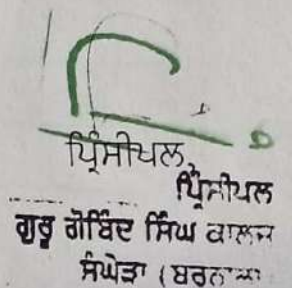 ਪ੍ਰਿੰਸੀਪਲ,
ਪ੍ਰਿੰਸੀਪਲ
ਗੁਰੂ ਗੋਬਿੰਦ ਸਿੰਘ ਕਾਲਜ
ਸੰਘੇੜਾ (ਬਰਨਾਲਾ